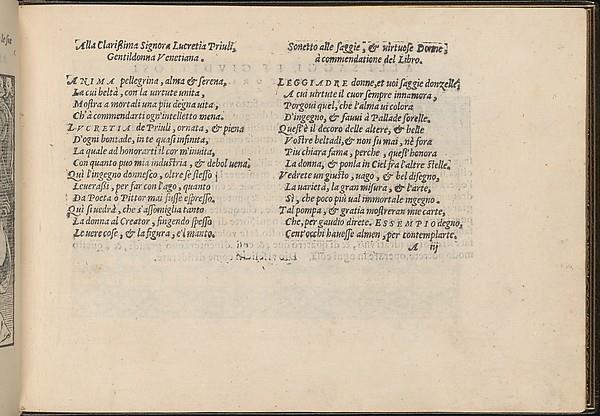 Alla Clarissima Signora Lucretia Priuli,
Gentildonna Venetiana.
ANIMA pellegrina, alma & serena,
La cui beltà, con la uirtute unita,
Mostra a mortali una piu deigna uita,
Ch'à commendarti ogn'intelletto mena.
LVCRETIA de Priuli, ornata, & piena
D'ogni bontade, in te quasi infinita,
La quale ad honorarti il cor m'inuita,
Con quanto puo mia industria, & debol uena.
Quì l'ingegno donnesco, oltre se stesso
Leuerassi, per far con l'ago, quanto
Da Poeta ò Pittor mai fusse espresso.
Quì si uedrà, che s'assomiglia tanto
La donna al Creator, fingendo spesso
Le uere cose, & la figura, e'l manto.
Sonetto alle saggie, & uirtuose Donne
à commendatione del Libro.
LEGGIADRE donne, et uoi saggie donzelle
A cui uirtute il cuor sempre innamora,
Porgoui quel, che l'alma ui colora
D'ingegno, & saui à Pallade sorelle.
Quest'è il decoro delle altere, & belle
Vostre beltadi, & non fu mai, nè fora
Piu chiara fama, perche, quest'honora
La donna, & ponla in Ciel fra l'altre stelle.
Vedrete un giusto, uago, & bel disegno,
La uarietà, la gran misura, & l'arte,
Sì, che poco più ual immortale ingegno.
Tal pompa, & gratia mostreran mie carte,
Che, per gaudio direte. ESSEMPIO degno,
Cent'occhi hauesse almen, per contemplarte.
A iij